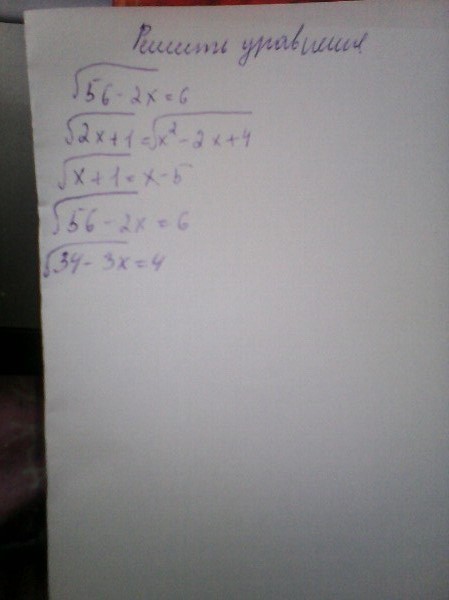 Решить уравнения
√56 - 2x = 6
√2x + 1 = √x² - 2x + 4
√x + 1 = x - 5
√56 - 2x = 6
√34 - 3x = 4